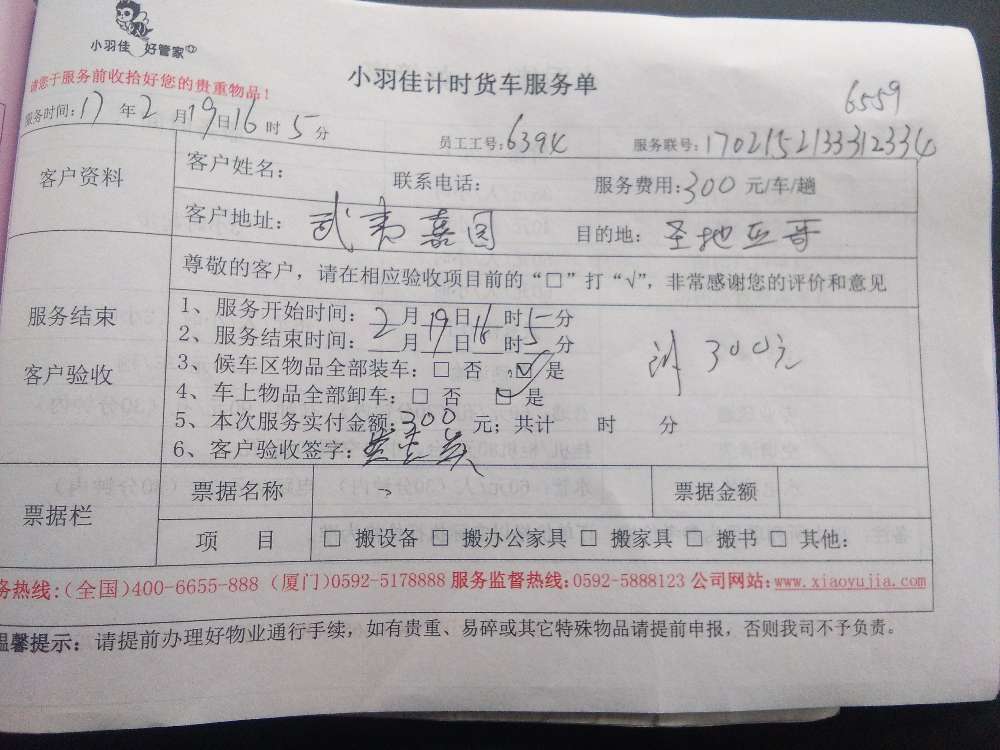 小羽佳 好管家
请您于服务前收拾好您的贵重物品!
小羽佳计时货车服务单
6559
服务时间:17年2月19日16时5分
员工工号:6394
服务联号:1702152133312334
客户资料
客户姓名:
联系电话:
服务费用:300元/车/趟
客户地址:武夷嘉园
目的地:圣地亚哥
服务结束
客户验收
尊敬的客户,请在相应验收项目前的“□”打“√”,非常感谢您的评价和意见
1、服务开始时间:2月19日16时5分
2、服务结束时间:__月19日__时5分
3、候车区物品全部装车:□ 否 ☑ 是
4、车上物品全部卸车:□ 否 ☑ 是
5、本次服务实付金额:300元;共计 时 分
6、客户验收签字:
300元
票据栏
票据名称
票据金额
项 目
□ 搬设备 □ 搬办公家具 □ 搬家具 □ 搬书 □ 其他:
务热线:(全国)400-6655-888 (厦门)0592-5178888 服务监督热线:0592-5888123 公司网站:www.xiaoyujia.com
温馨提示:请提前办理好物业通行手续,如有贵重、易碎或其它特殊物品请提前申报,否则我司不予负责。